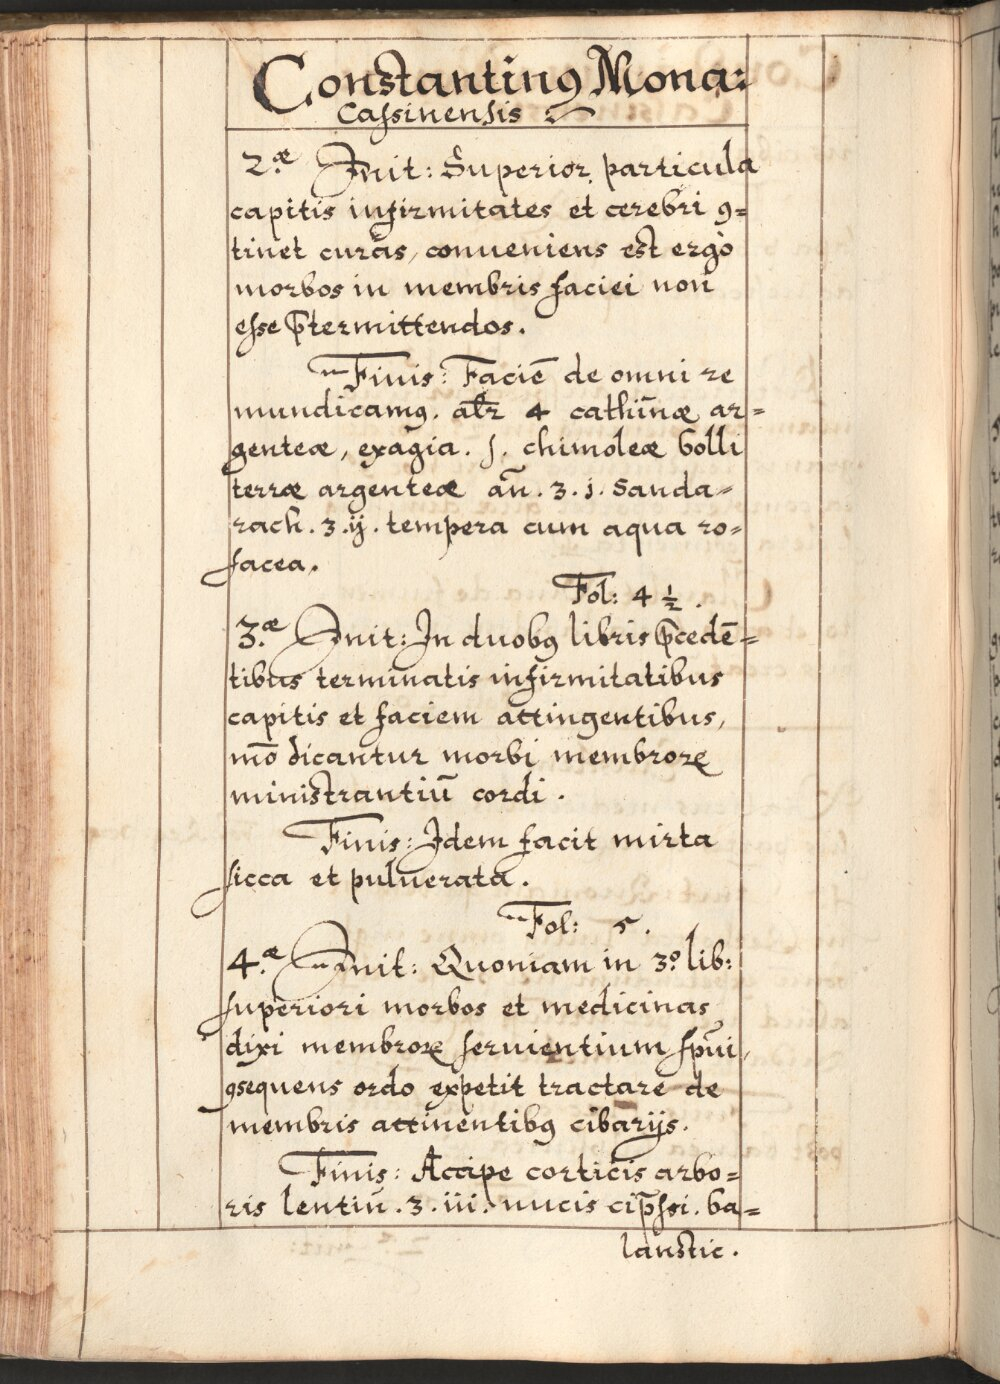 Constantinꝰ Mona:
Caſsinensis
2.æ Init: Superior particula
capitis infirmitates et cerebri ꝯ=
tinet curas, conueniens est ergo
morbos in membris faciei non
eſse p̄termittendos.
Finis: Faciē de omni re
mundicamꝰ. alr̄ 4 cathimæ ar=
genteæ, exagia. ſ. chimoleæ bolli
terræ argenteæ an̄. ʒ. j. Sanda=
rach. ʒ. ij. tempera cum aqua ro=
ſacea.
Fol: 4 ½.
3.æ Init: In duobꝰ libris p̄cedē=
tibus terminatis infirmitatibus
capitis et faciem attingentibus,
mō dicantur morbi membroꝝ
ministrantiū cordi.
Finis: Idem facit mirta
ſicca et puluerata.
Fol: 5.
4.æ Init: Quoniam in 3.º lib:
ſuperiori morbos et medicinas
dixi membroꝝ ſeruientium ſpūi,
ꝯsequens ordo expetit tractare de
membris attinentibꝰ cibarijs.
Finis: Accipe corticis arbo=
ris lentiū. ʒ. iii. nucis cip̄ſsi. ba=
lanstic.